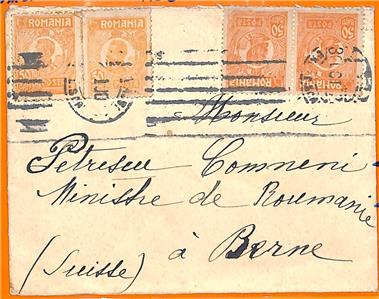 ROMANIA ROMANIA
50 50
POSTA POSTA
50 BANI
Monsieur
Petrescu Comneni
Ministre de Roumanie
à Berne
(Suisse)